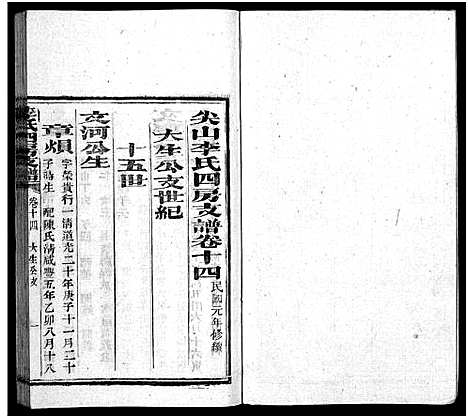 尖山李氏四房支譜卷十四
民國元年修續
大生公支世紀
十五世
文河公生
章煩
字榮貴行一清道光二十年庚子十一月二十
子時生 配陳氏清咸豐五年乙卯八月十八
李氏四房支譜
卷十四 大生公支 一